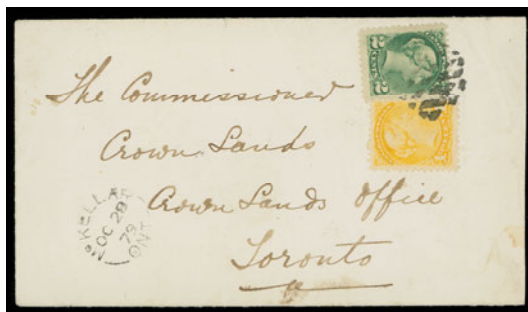 2 2
The Commissioner
Crown Lands
Crown Lands Office
Toronto
McKELLAR
OC 28
79
ONT